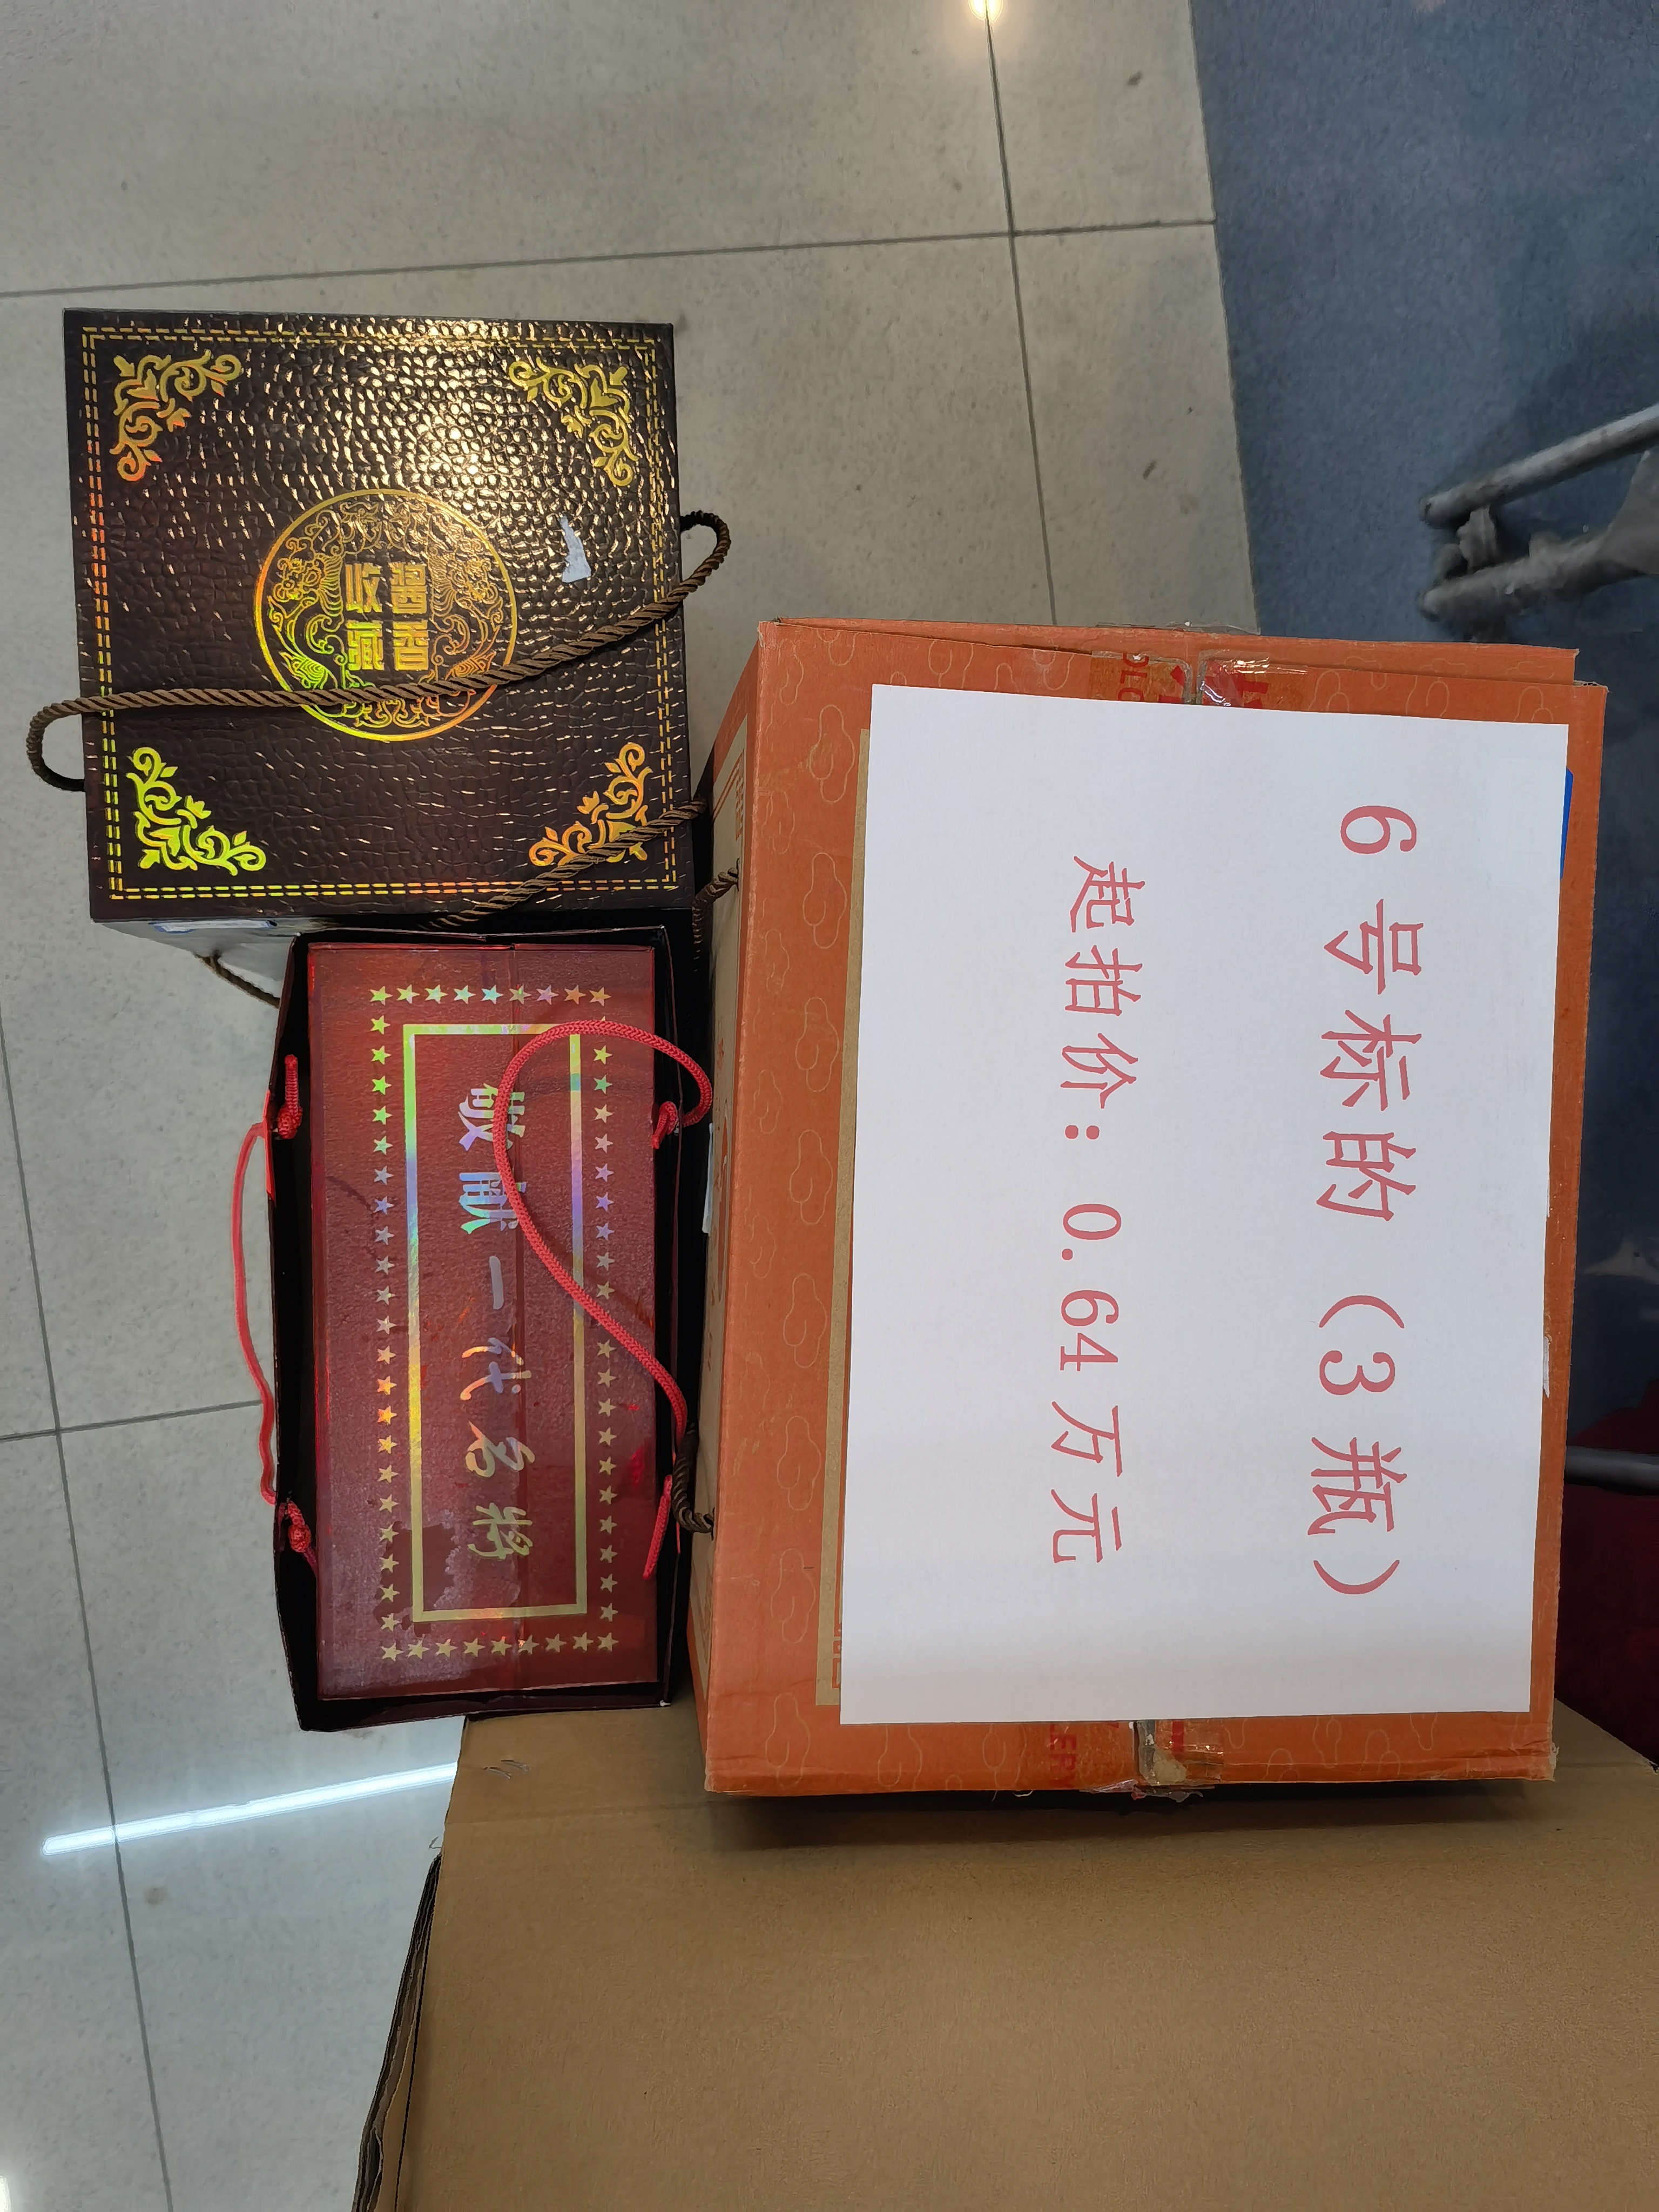 6号标的（3瓶）
起拍价：0.64万元
酱香
收藏
敬献一代名将